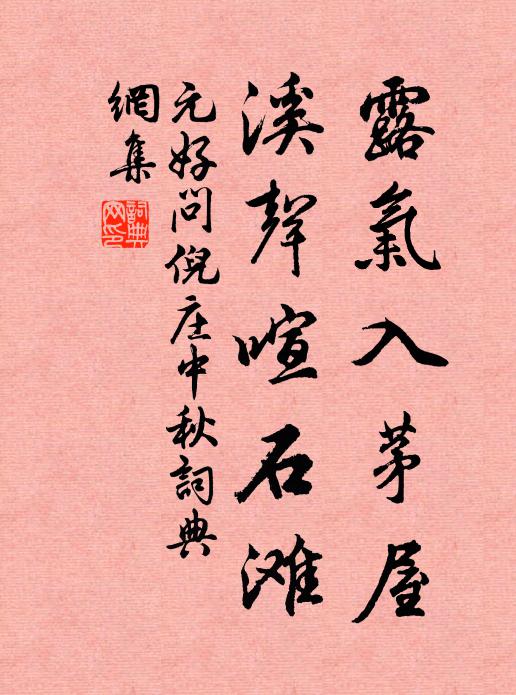 露氣入茅屋
溪聲喧石滩
元好问倪庄中秋詞典
網集
詞典
网印